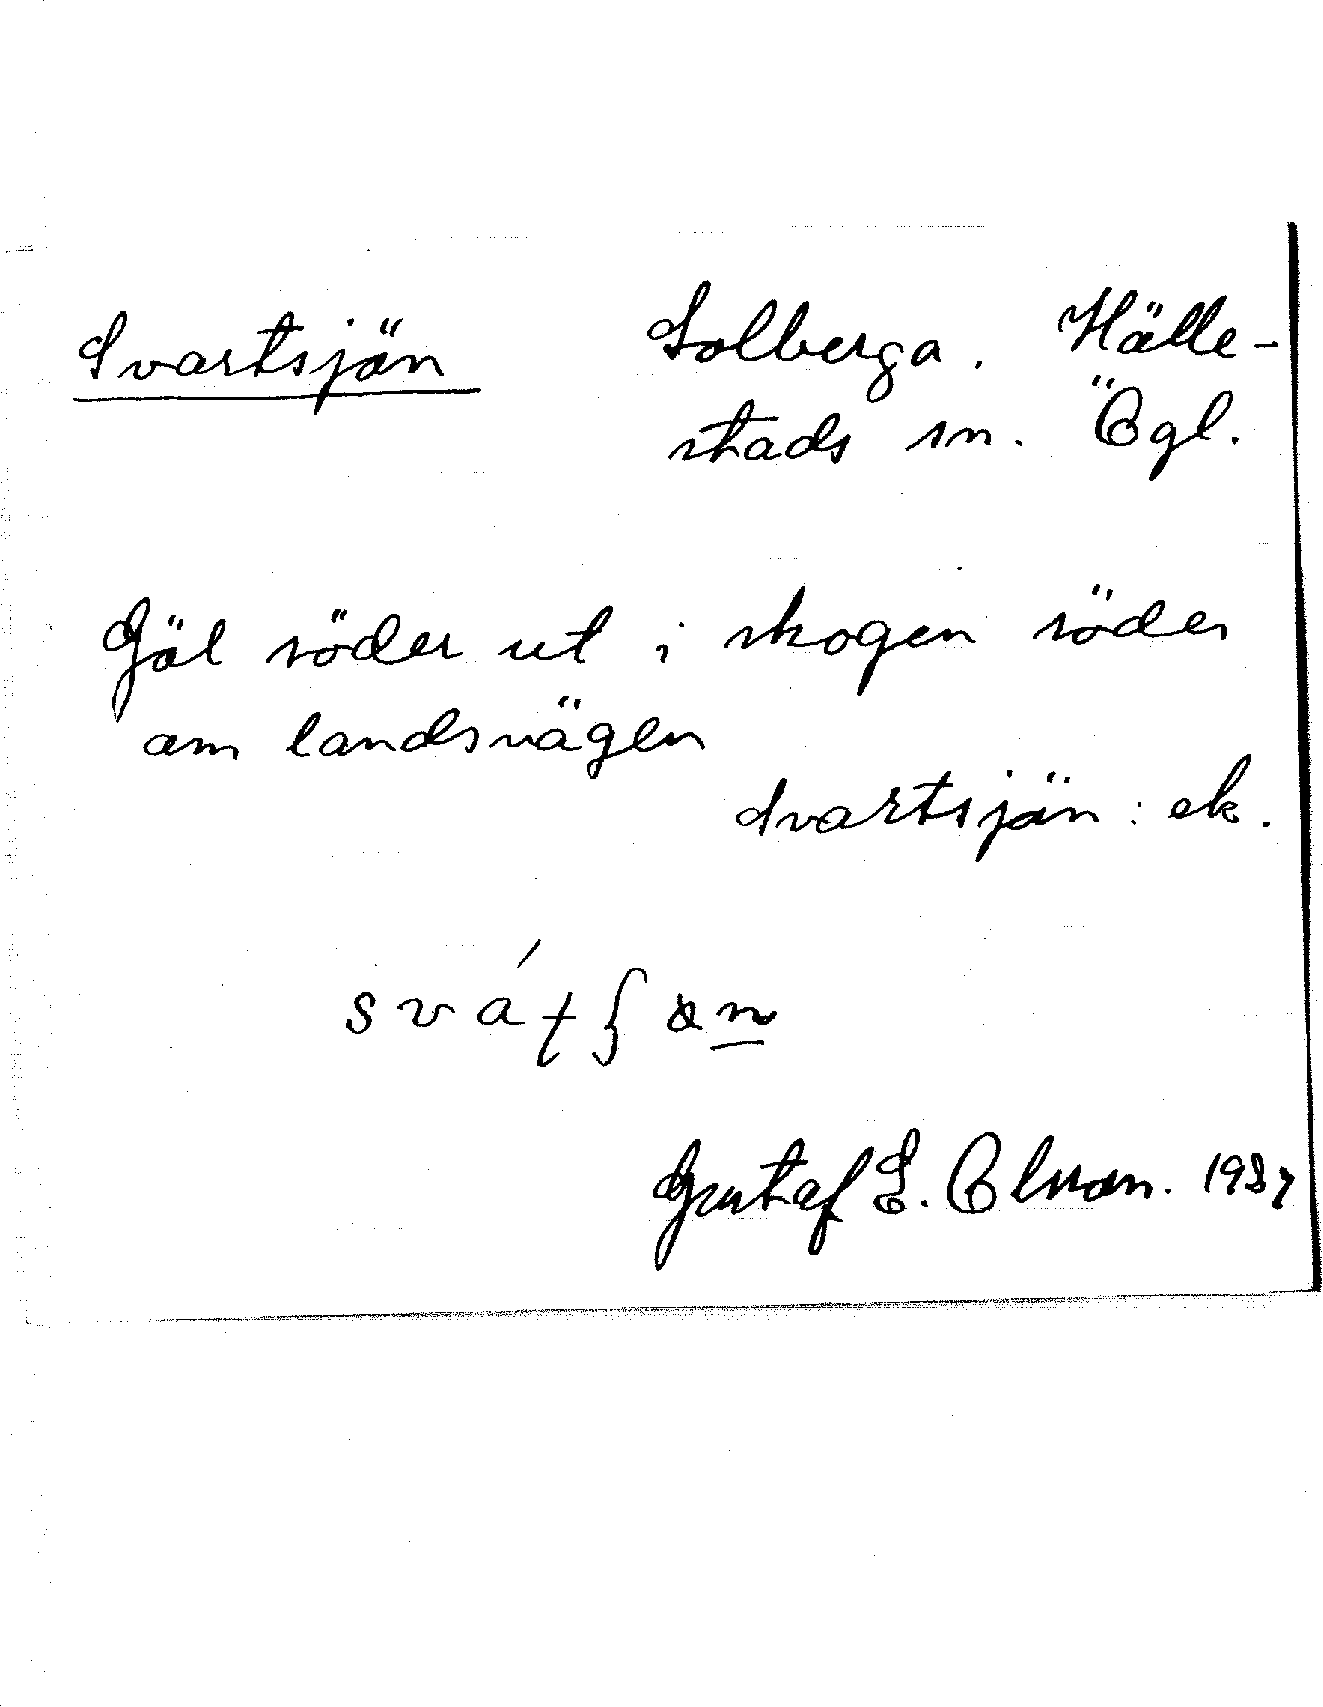 Svartsjön Solberga. Hälle-
stads sn. Ögl.
Göl söder ut i skogen söder
om landsvägen
Svartsjön: ek.
Gustaf E. Olson. 1937